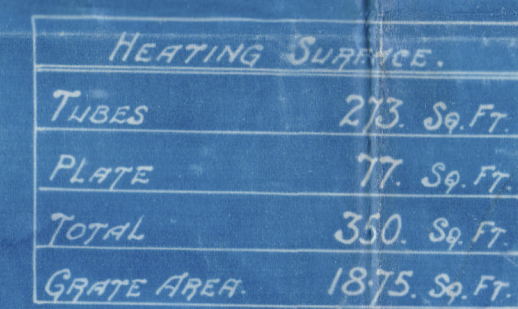 HEATING SURFACE.
TUBES 273. SQ. FT.
PLATE 77. SQ. FT.
TOTAL 350. SQ. FT.
GRATE AREA. 18.75. SQ. FT.